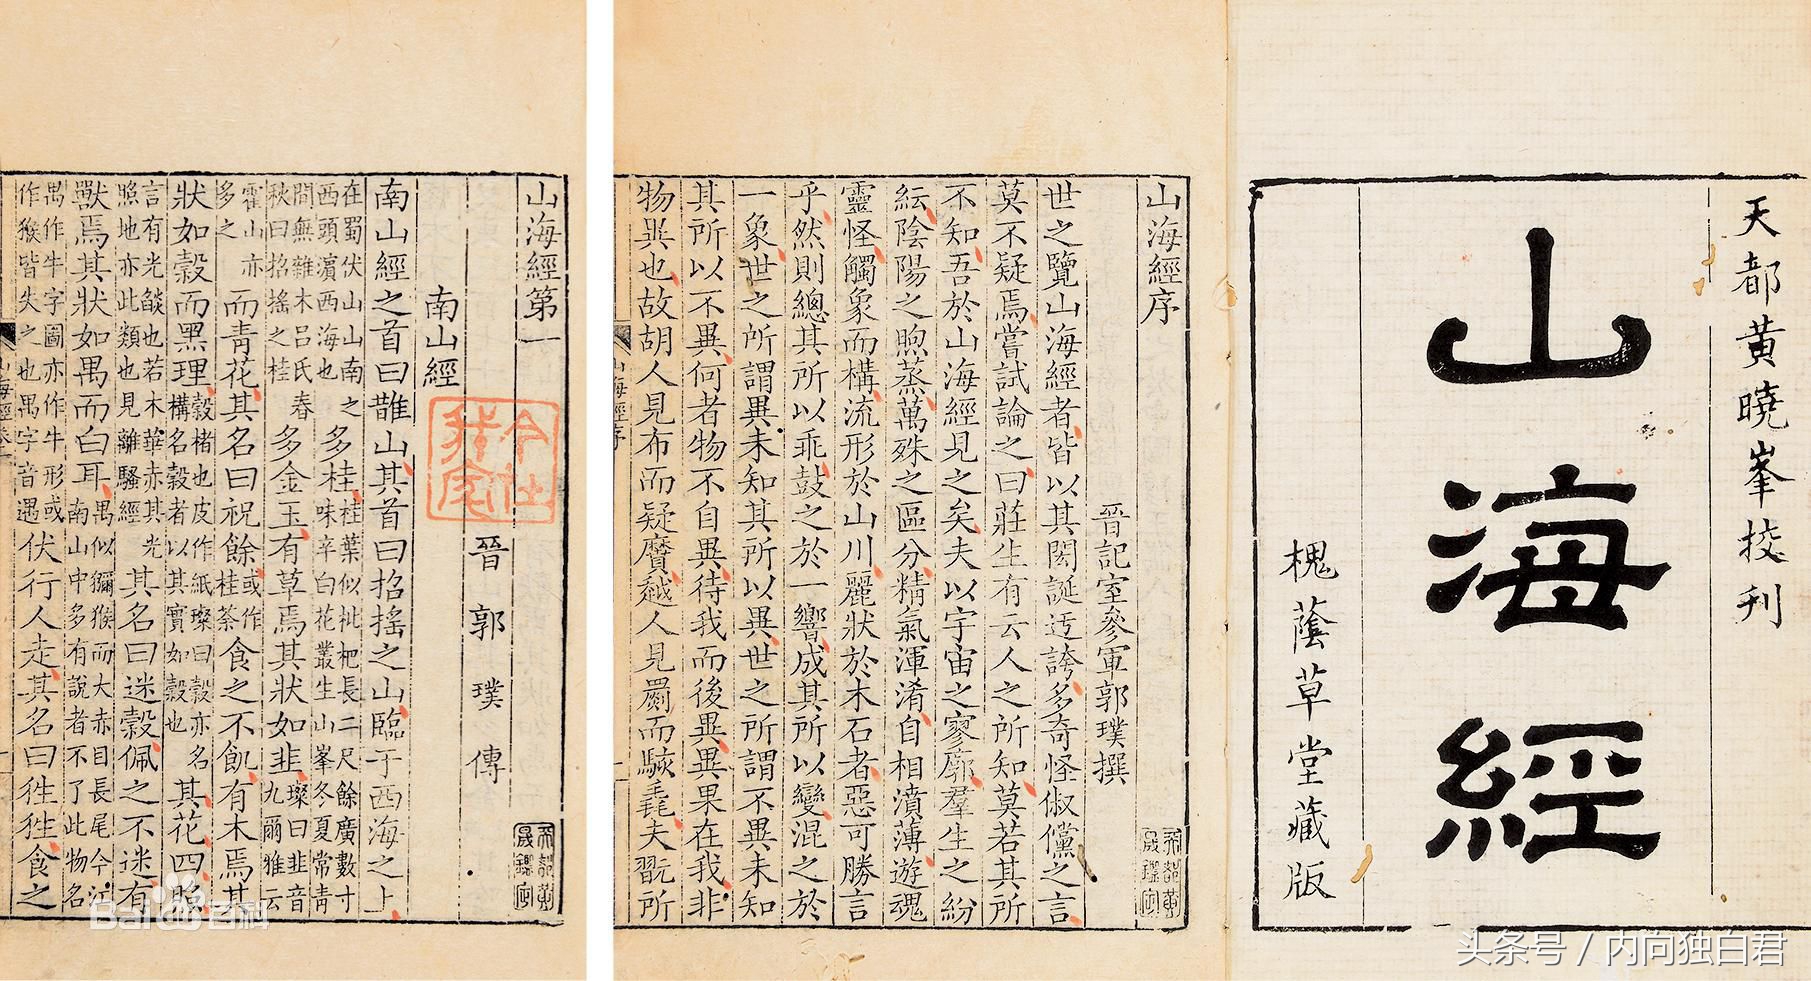 天都黃曉峯挍刋
山海經
槐蔭草堂藏版
山海經序
晉記室參軍郭璞撰
世之覽山海經者皆以其閎誕迃誇多奇怪俶儻之言
莫不疑焉嘗試論之曰莊生有云人之所知莫若其所
不知吾於山海經見之矣夫以宇宙之寥廓羣生之紛
紜陰陽之煦蒸萬殊之區分精氣渾淆自相濆薄遊魂
靈怪觸象而構流形於山川麗狀於木石者惡可勝言
乎然則總其所以乖鼓之於一響成其所以變混之於
一象世之所謂異未知其所以異世之所謂不異未知
其所以不異何者物不自異待我而後異異果在我非
物異也故胡人見布而疑黂越人見罽而駭毳夫翫所
山海經序
山海經第一
南山經
晉郭璞傳
南山經之首曰䧿山其首曰招搖之山臨于西海之上
在蜀伏山山南之西頭濵西海也
多桂
桂葉似枇杷長二尺餘廣數寸味辛白花叢生山峯冬夏常靑間無雜木呂氏春秋曰招搖之桂
多金玉有草焉其狀如韭
璨曰韭音九爾雅云霍山亦多之
而靑花其名曰祝餘
或作桂荼
食之不飢有木焉其
狀如穀而黑理
穀楮也皮作紙璨曰穀亦名構名穀者以其實如穀也
其花四照
言有光燄也若木華赤其光照地亦此類也見離騷經
其名曰迷穀佩之不迷有
獸焉其狀如禺而白耳
禺似獼猴而大赤目長尾今江南山中多有說者不了此物名禺作牛字圖亦作牛形或作猴皆失之也禺字音遇
伏行人走其名曰狌狌食之
Bai百科
头条号 / 内向独白君